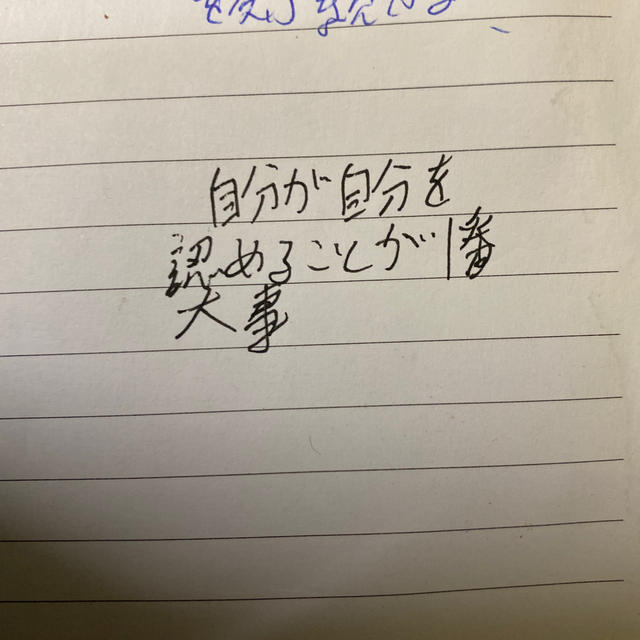 自分が自分を
認めることが1番
大事